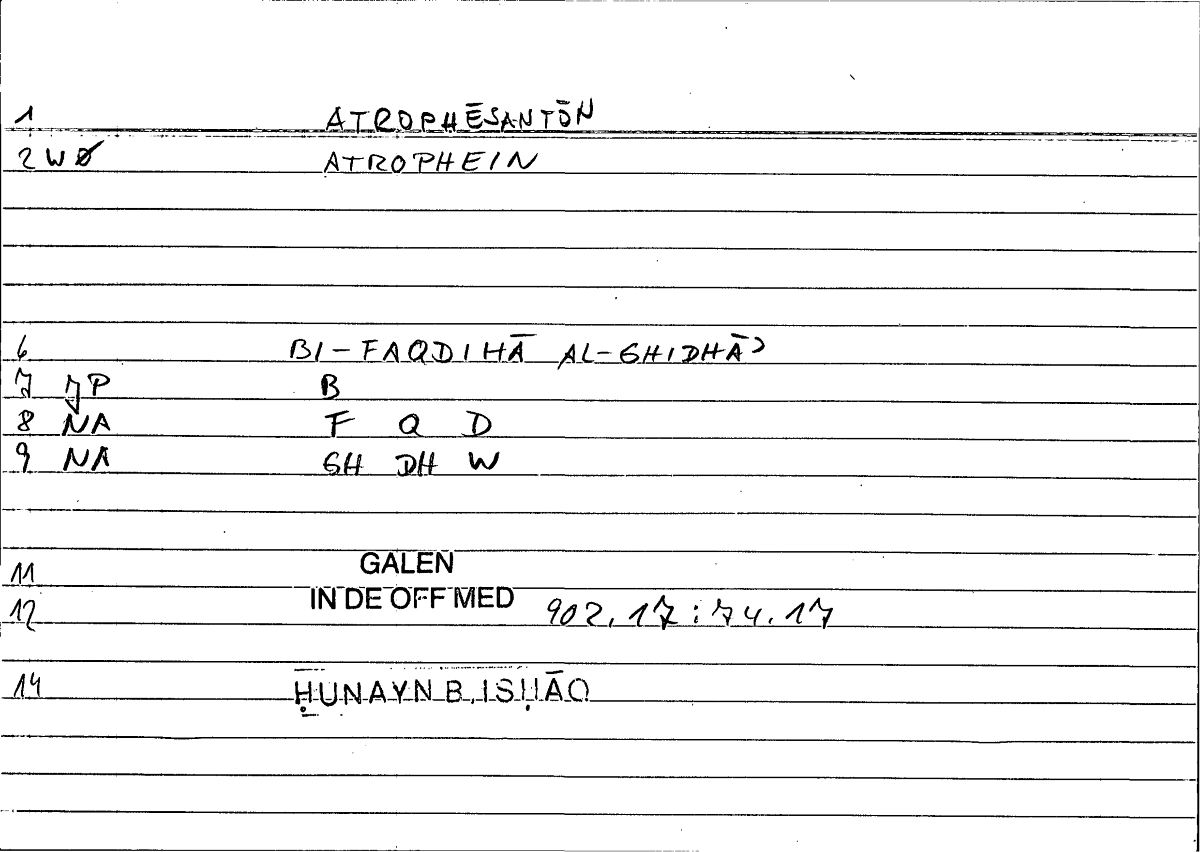 1 ATROPHĒSANTŌN
2 WØ ATROPHEIN
6 BI-FAQDIHĀ AL-GHIDHĀʾ
7 JP B
8 NA F Q D
9 NA GH DH W
11 GALEN
12 IN DE OFF MED 902.17:74.17
14 ḤUNAYN B. ISḤĀQ